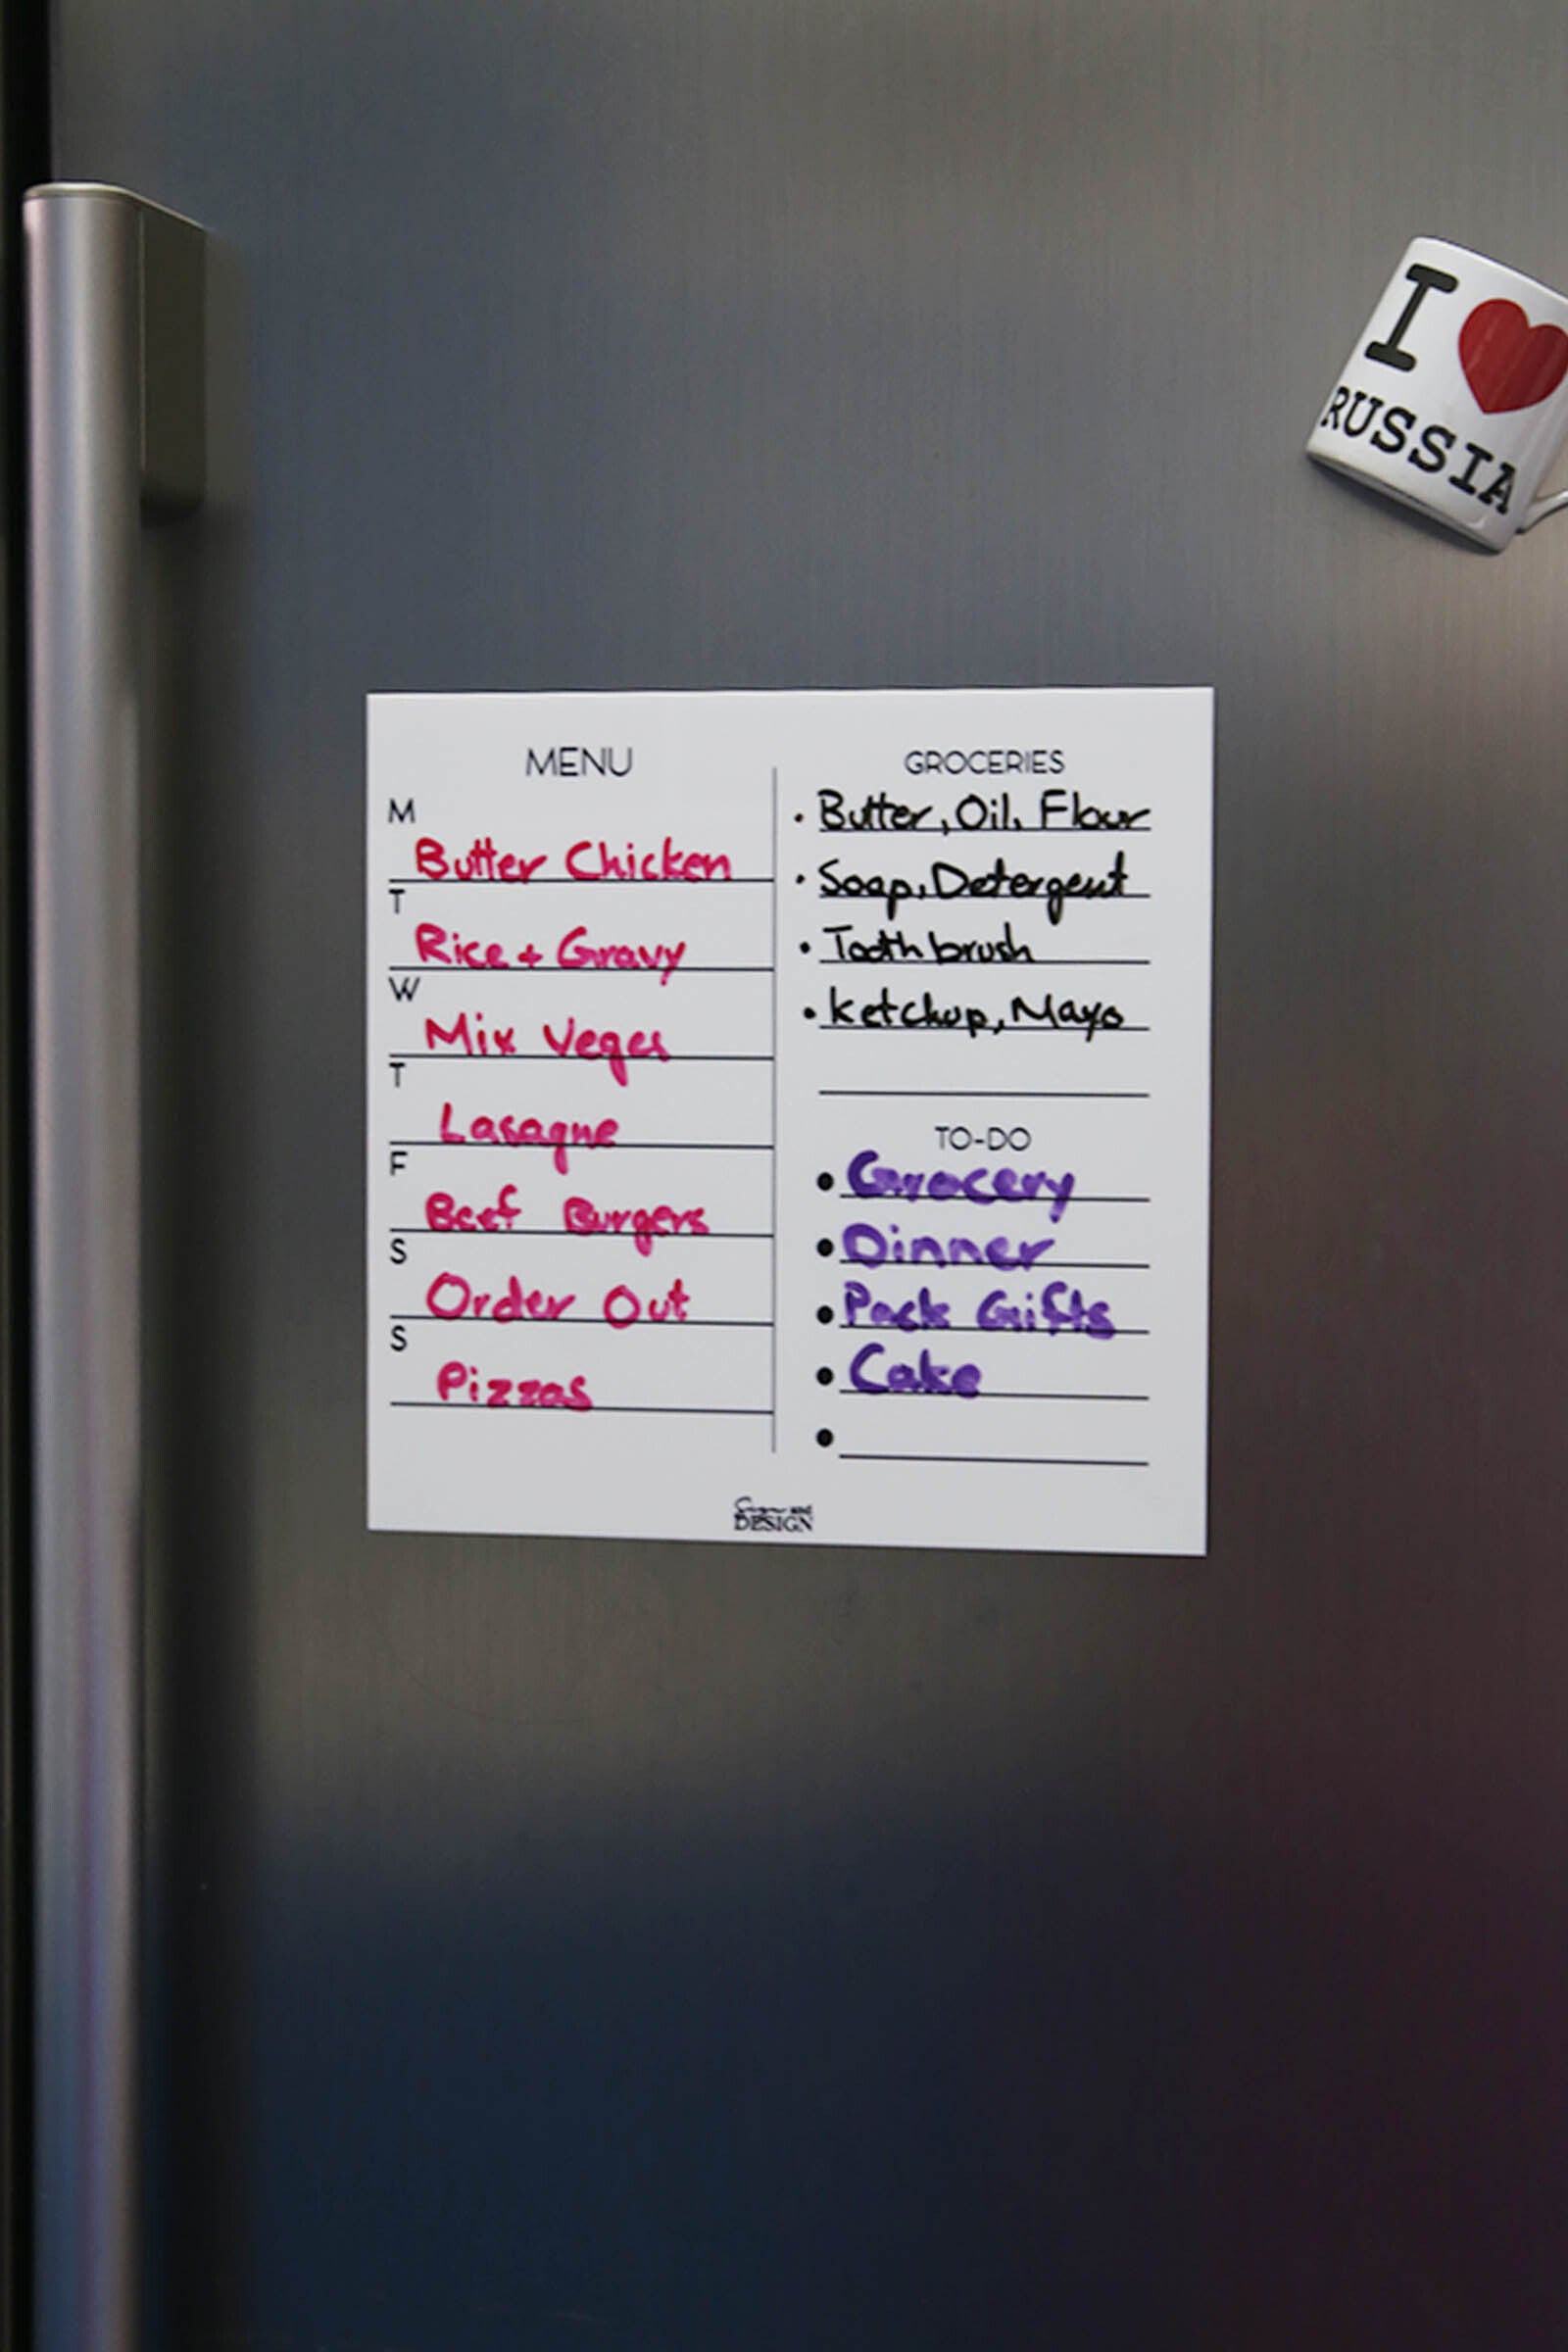 I ❤
RUSSIA
MENU
M
Butter Chicken
T
Rice + Gravy
W
Mix Veges
T
Lasagne
F
Beef Burgers
S
Order Out
S
Pizzas
GROCERIES
• Butter, Oil, Flour
• Soap, Detergent
• Toothbrush
• Ketchup, Mayo
TO-DO
• Grocery
• Dinner
• Pack Gifts
• Cake
•
DESIGN